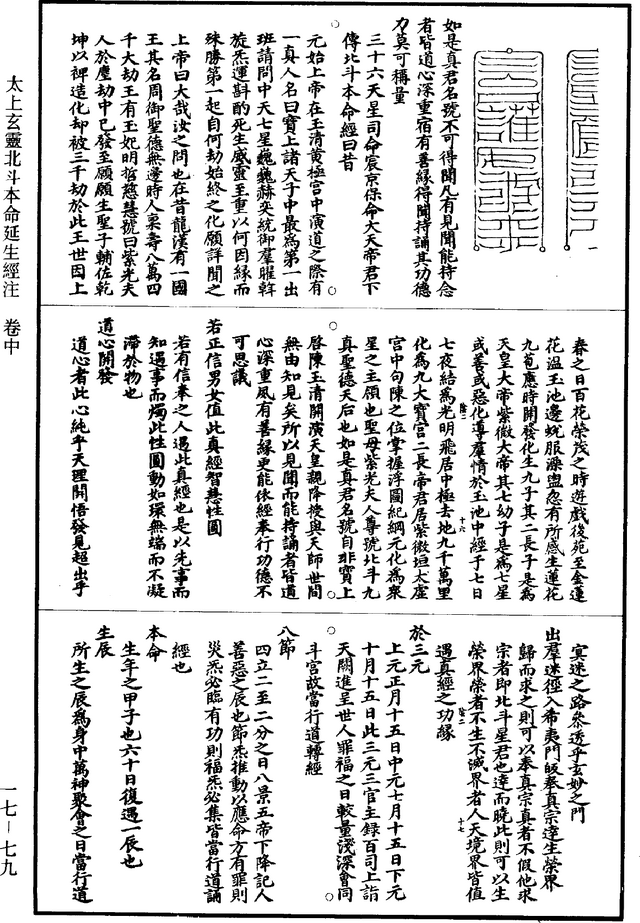 如是真君名號不可得聞凡有見聞能持念
者皆道心深重宿有善緣得聞持誦其功德
力莫可稱量
三十六天星司命宸京保命大天帝君下
傳北斗本命經曰昔
元始上帝在玉清黃極宮中演道之際有
一真人名曰寶上諸天子中最為第一出
班請問中天七星巍巍赫奕統御羣曜斡
旋炁運斟酌死生威靈至重以何因緣而
殊勝第一起自何劫始終之化願詳聞之
上帝曰大哉汝之問也在昔龍漢有一國
王其名周御聖德無邊時人稟壽八萬四
千大劫王有玉妃明哲慈慧號曰紫光夫
人於塵劫中已發至願願生聖子輔佐乾
坤以裨造化却被三千劫於此王世因上
春之日百花榮茂之時遊戲後苑至金蓮
花溫玉池邊蛻服澡盥忽有所感生蓮花
九苞應時開發化生九子其二長子是為
天皇大帝紫微大帝其七幼子是為七星
或善或惡化導羣情於玉池中經于七日
七夜結為光明飛居中極去地九千萬里
化為九大寶宮二長帝君居紫微垣太虛
宮中句陳之位掌握浮圖紀綱元化為衆
星之主領也聖母紫光夫人尊號北斗九
真聖德天后也如是真君名號自非寶上
啓陳玉清開演天皇親降後與天師世間
無由知見矣所以見聞而能持誦者皆道
心深重夙有善緣更能依經奉行功德不
可思議
若正信男女值此真經智慧性圓
若有信奉之人遇此真經也是以先事而
知遇事而燭此性圓動如環無端而不凝
滯於物也
道心開發
道心者此心純乎天理開悟發見超出乎
冥迷之路叅透乎玄妙之門
出羣迷徑入希夷門皈奉真宗達生榮界
歸而求之則可以奉真宗真者不假他求
宗者即北斗星君也達而曉此則可以生
榮界榮者不生不滅界者人天境界皆值
遇真經之功緣
於三元
上元正月十五日中元七月十五日下元
十月十五日此三元三官主録百司上詣
天闕進呈世人罪福之日較量淺深會同
斗宮故當行道轉經
八節
四立二至二分之日八景五帝下降記人
善惡之辰也節炁推動以應命方有罪則
災炁必臨有功則福炁必集皆當行道誦
經也
本命
生年之甲子也六十日復遇一辰也
生辰
所生之辰為身中萬神聚會之日當行道
太上玄靈北斗本命延生經注 卷中
一七－七九